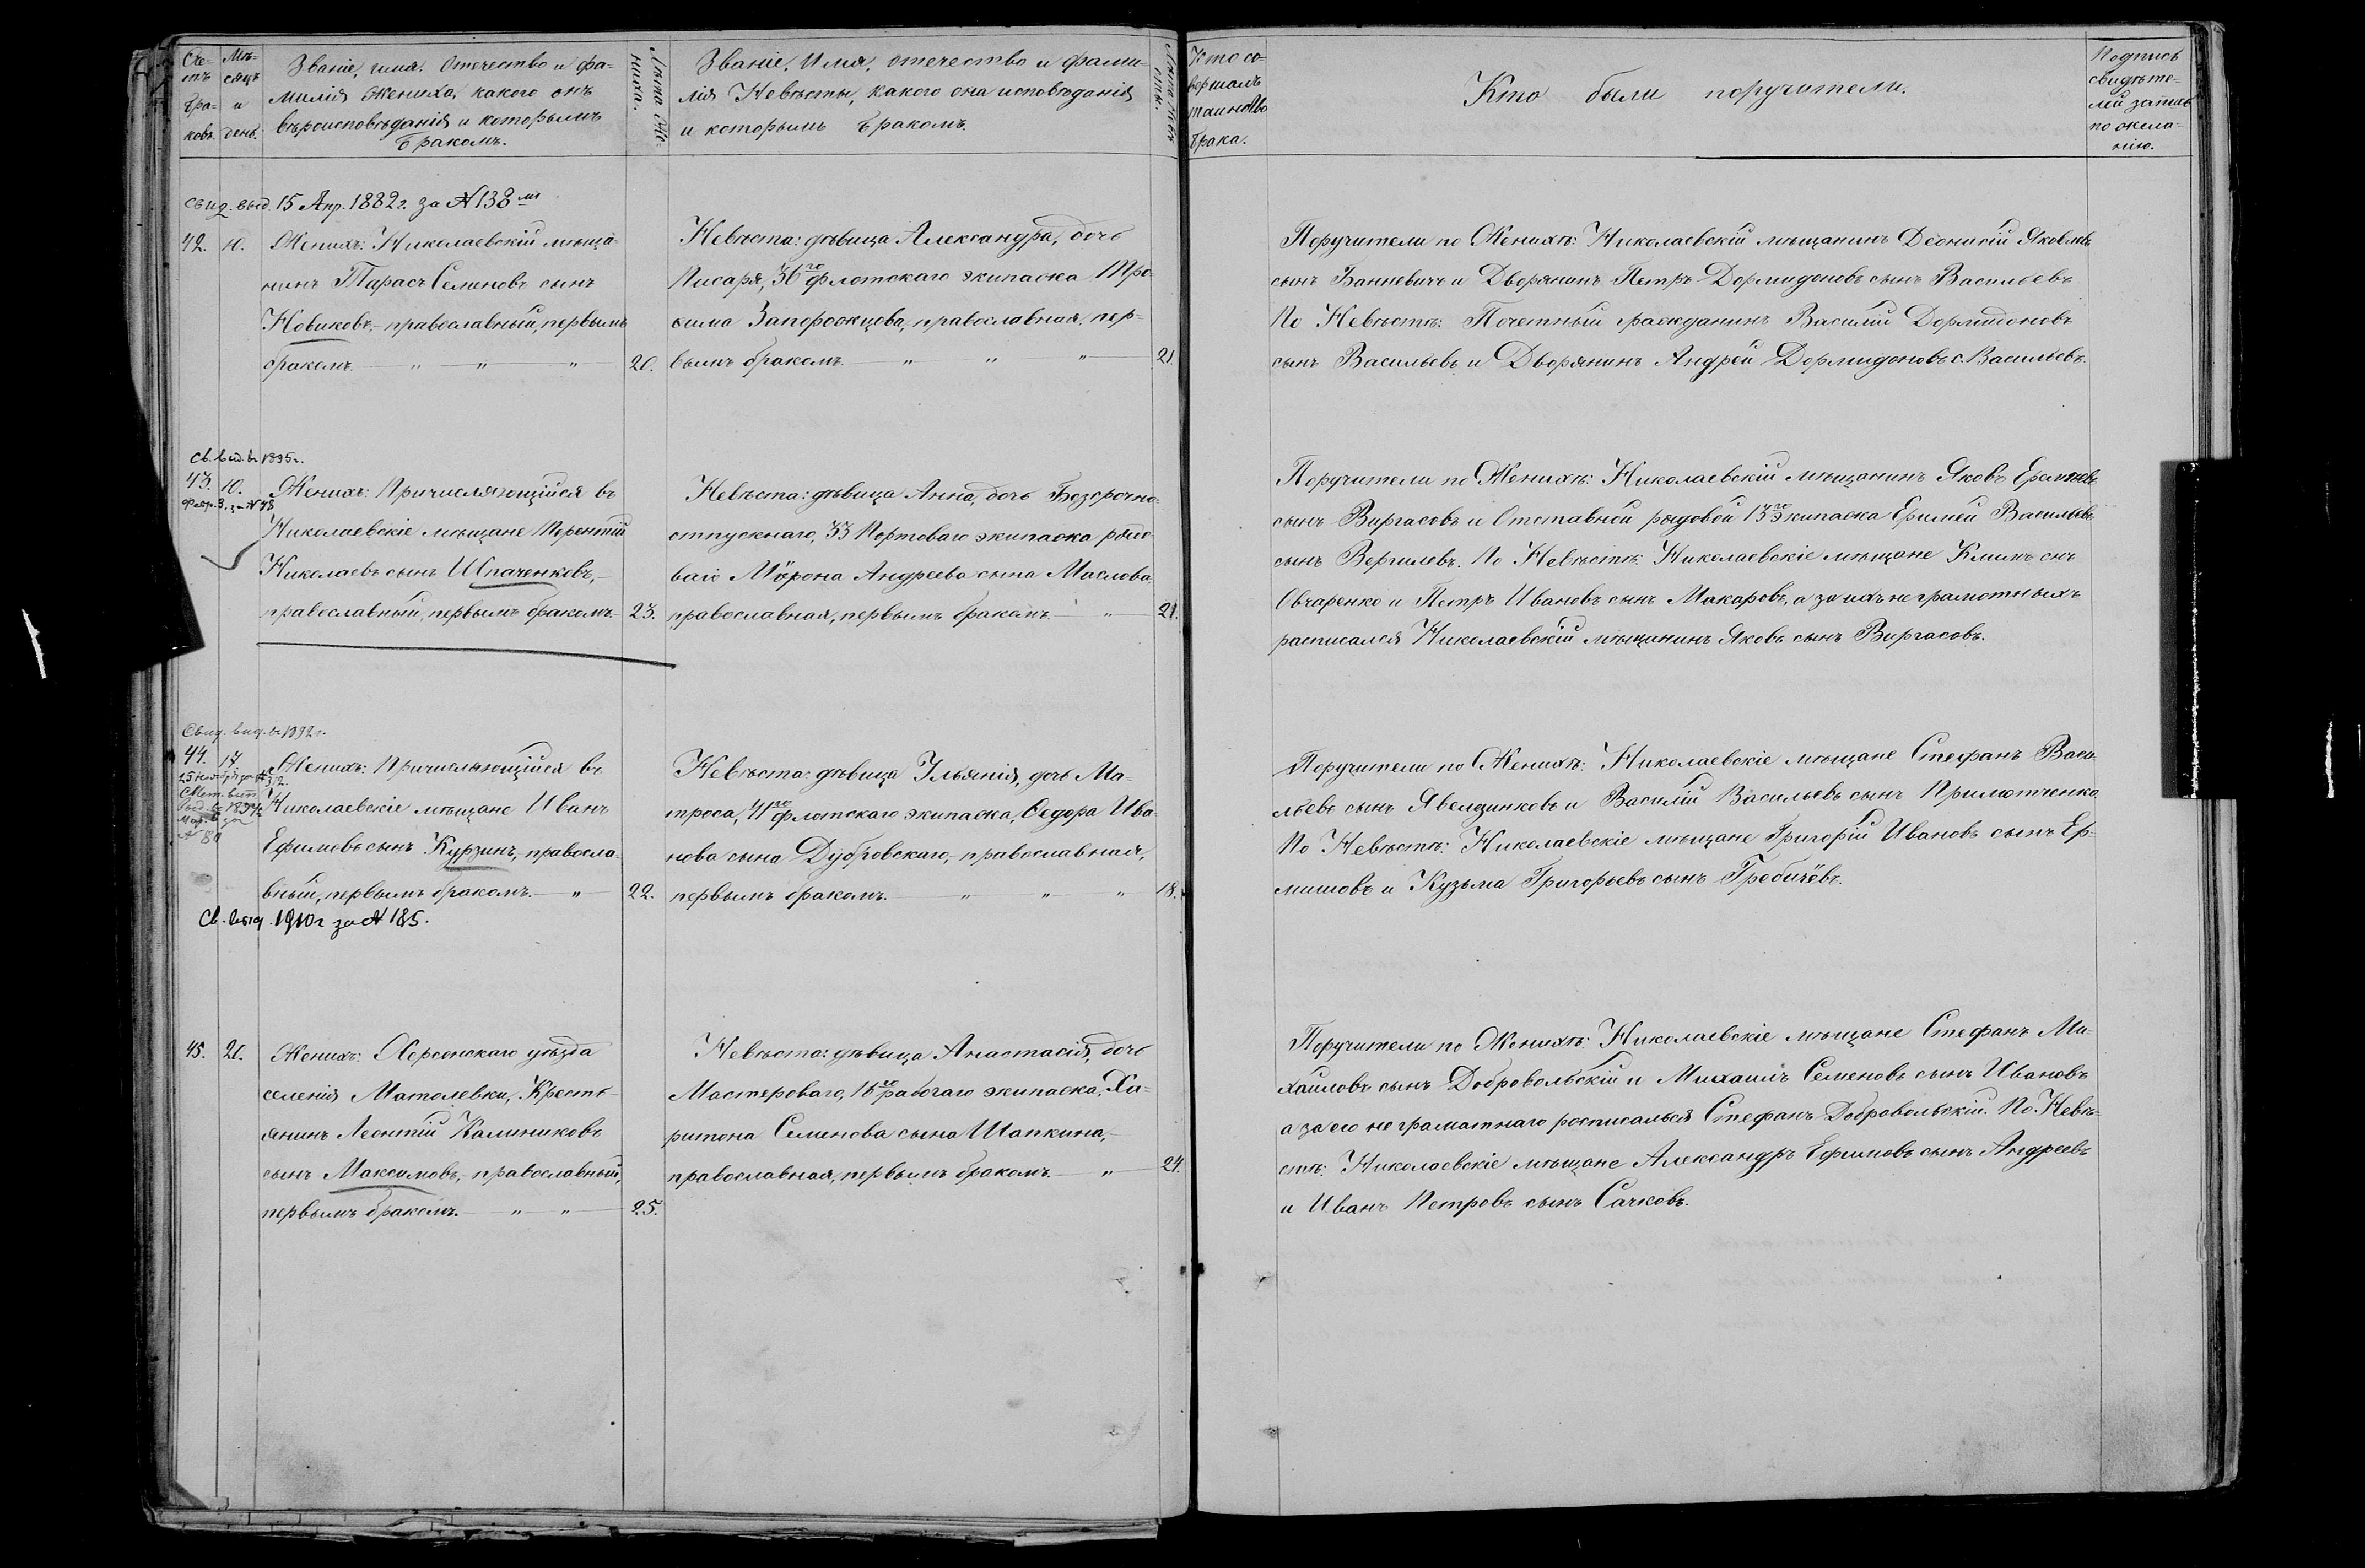 Сче-
тъ
бра-
ковъ.
Мѣ-
сяцъ
и
день.
Званіе, имя, Отечество и фа-
милія Жениха, какого онъ
вѣроисповѣданія и которымъ
бракомъ.
Лѣта Же-
ниха.
Званіе, Имя, отечество и фами-
лія Невѣсты, какого она исповѣданія
и которымъ бракомъ.
Кто со-
вершалъ
таинство
брака.
Кто были поручители.
Подпись
свидѣте-
лей записи
по жела-
нію.
свид. выд. 15 Апр. 1882 г. за № 138
42. 10. Женихъ: Николаевскій мѣща-
нинъ Тарасъ Семеновъ сынъ
Новиковъ,- православный, первымъ
бракомъ. " " " 20.
Невѣста: дѣвица Александра, дочь
Писаря, 36го флотскаго экипажа Тро-
фима Запорожцова,- православная, пер-
вымъ бракомъ. " " " 21.
Поручители по Женихѣ: Николаевскій мѣщанинъ Деонисій Яковлевъ
сынъ Банневичъ и Дворянинъ Петръ Дормидоновъ сынъ Васильевъ
По Невѣстѣ: Почетный гражданинъ Василій Дормидоновъ
сынъ Васильевъ и Дворянинъ Андрей Дормидоновъ с. Васильевъ.
Св. выд. въ 1895 г.
43. 10. Женихъ: Причисляющійся въ
Николаевскіе мѣщане Терентій
Николаевъ сынъ Шпаченковъ,-
православный, первымъ бракомъ.- 23.
Невѣста: дѣвица Анна, дочь Безсрочно-
отпускнаго, 33 Портоваго экипажа рядо-
ваго Мирона Андреева сына Маслова,
православная, первымъ бракомъ. " 21.
Поручители по Женихѣ: Николаевскій мѣщанинъ Яковъ Еремѣевъ
сынъ Виргасовъ и Отставной рядовой 13го экипажа Еримей Васильевъ
сынъ Вергилевъ. По Невѣстѣ: Николаевскіе мѣщане Климъ снъ
Овчаренко и Петръ Ивановъ сынъ Макаровъ, а за ихъ неграмотныхъ
расписался Николаевскій мѣщанинъ Яковъ сынъ Виргасовъ.
Свид. выд. въ 1892 г.
44. 17. Женихъ: Причисляющійся въ
Николаевскіе мѣщане Иванъ
Ефимовъ сынъ Курзинъ,- правосла-
вный, первымъ бракомъ.- " 22.
Св. выд. 1910 г за № 185.
Невѣста: дѣвица Ульянія, дочь Ма-
троса, 41го флотскаго экипажа, Ѳедора Ива-
нова сына Дубровскаго,- православная,
первымъ бракомъ. " " " 18.
Поручители по Женихѣ: Николаевскіе мѣщане Стефанъ Васи-
льевъ сынъ Явелзинковъ и Василій Васильевъ сынъ Прилютченко
По Невѣстѣ: Николаевскіе мѣщане Григорій Ивановъ сынъ Ер-
мишовъ и Кузьма Григорьевъ сынъ Гребичёвъ.
45. 21. Женихъ: Херсонскаго уѣзда
селенія Матолевки, Кресть-
янинъ Леонтій Калиниковъ
сынъ Максимовъ,- православный,
первымъ бракомъ. " " 25.
Невѣста: дѣвица Анастасія, дочь
Мастероваго, 16го рабочаго экипажа, Ха-
ритона Семенова сына Шапкина,-
православная, первымъ бракомъ. " 24.
Поручители по Женихѣ: Николаевскіе мѣщане Стефанъ Ми-
хайловъ сынъ Добровольскій и Михаилъ Семеновъ сынъ Ивановъ
а за его не граматнаго росписалься Стефанъ Добровольскій. По Невѣ-
стѣ: Николаевскіе мѣщане Александръ Ефимовъ сынъ Андреевъ
и Иванъ Петровъ сынъ Сачковъ.